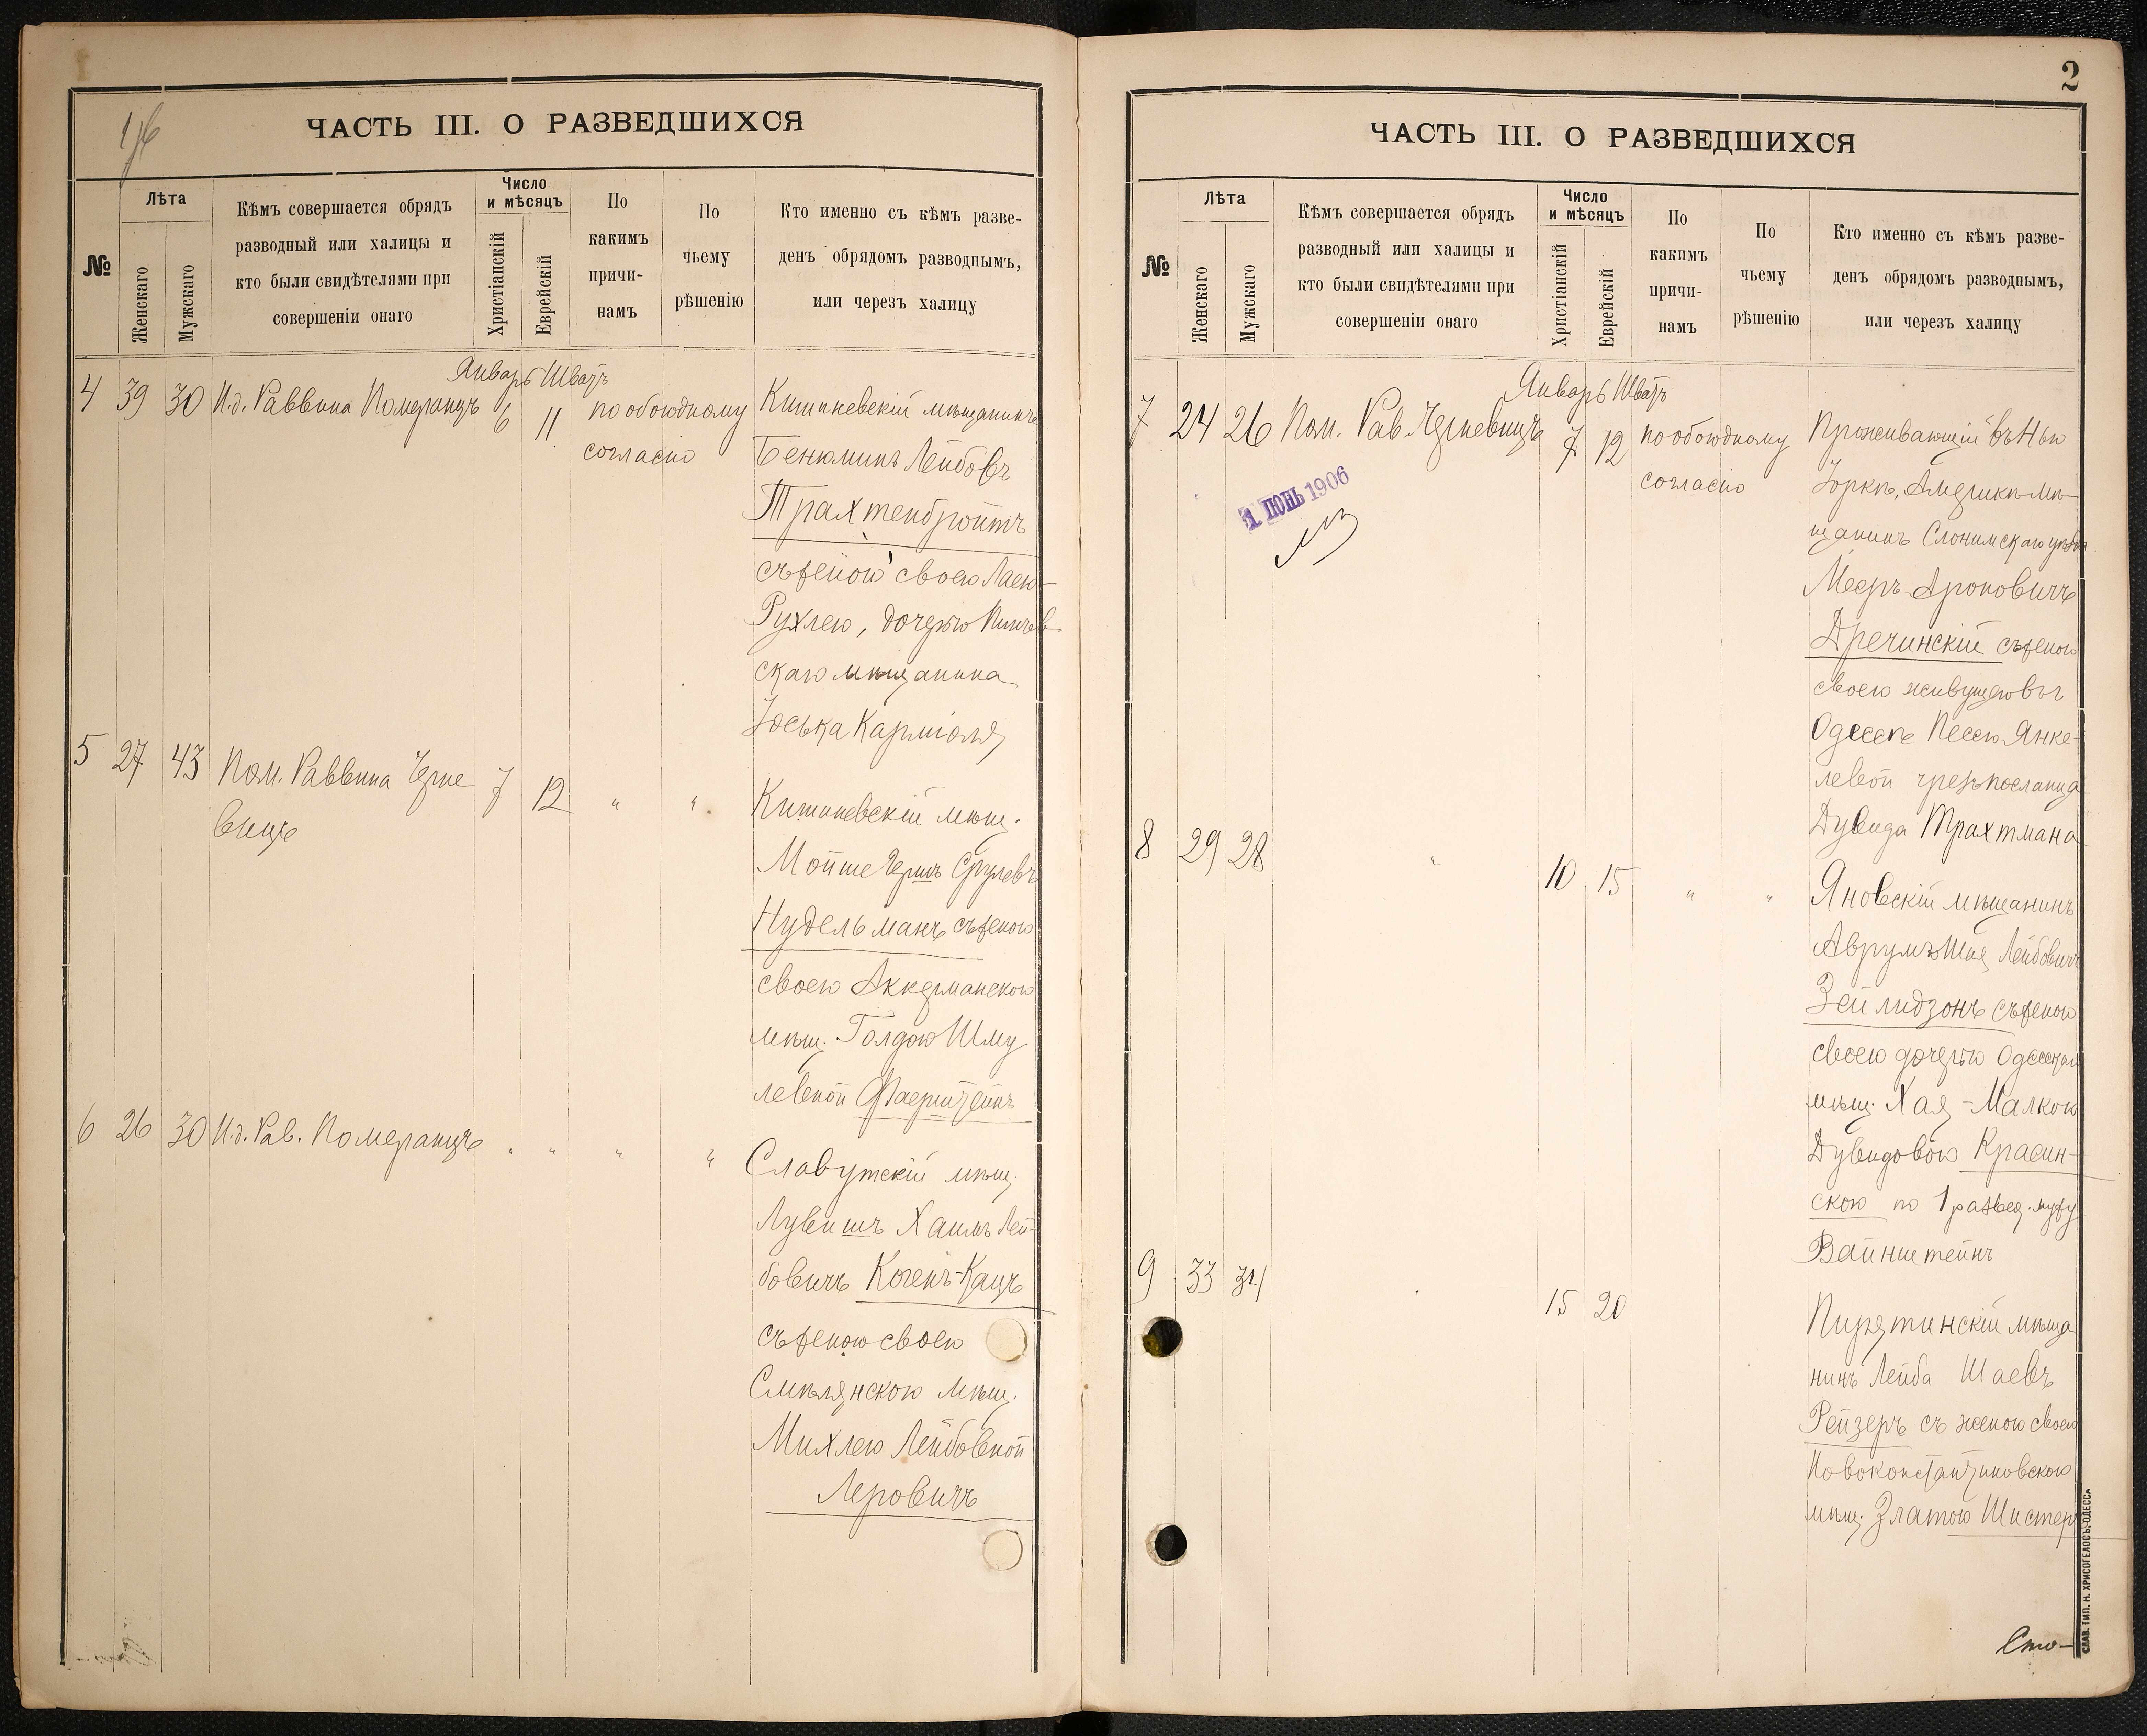 ЧАСТЬ III. О РАЗВЕДШИХСЯ
№
Лѣта
Женскаго
Мужскаго
Кѣмъ совершается обрядъ
разводный или халицы и
кто были свидѣтелями при
совершеніи онаго
Число
и мѣсяцъ
Христіанскій
Еврейскій
По
какимъ
причи-
намъ
По
чьему
рѣшенію
Кто именно съ кѣмъ разве-
денъ обрядомъ разводнымъ,
или через халицу
Январь Шватъ
4 39 30 И.д. Раввина Померанцъ 6 11 по обоюдному
согласію
Кишиневскій мѣщанинъ
Бенюминъ Лейбовъ
Трахтенбройтъ
съ женой своею Лаею-
Рухлею, дочерью
скаго мѣщанина
Іоська Карміоля
5 27 43 Пом. Раввина Черне
вицъ
7 12 " "
Кишиневскій мѣщ.
Мойше Гершъ Срулевъ
Нудельманъ съ женою
своею Аккерманскою
мѣщ. Голдою Шму
левной Фаерштейнъ
6 26 30 И.д. Рав. Померанцъ " " " "
Славутскій мѣщ.
Лувишъ Хаимъ Лей-
бовичъ Когенъ-Кацъ
съ женою своею
Смѣлянскою мѣщ.
Михлею Лейбовной
Леровичъ
2
ЧАСТЬ III. О РАЗВЕДШИХСЯ
№
Лѣта
Женскаго
Мужскаго
Кѣмъ совершается обрядъ
разводный или халицы и
кто были свидѣтелями при
совершеніи онаго
Число
и мѣсяцъ
Христіанскій
Еврейскій
По
какимъ
причи-
намъ
По
чьему
рѣшенію
Кто именно съ кѣмъ разве-
денъ обрядомъ разводнымъ,
или черезъ халицу
Январь Шватъ
7 24 26 Пом. Рав Черневицъ 7 12 по обоюдному
согласію
1 ІЮНЬ 1906
Проживающій въ Нью
Іоркѣ, Америкѣ мѣ-
щанинъ Слонимскаго уѣзда
Мееръ Ароновичъ
Дречинскій съ женою
своею живущею въ
Одессѣ Песею Янке-
левой чрезъ посланца
Дувида Трахтмана
8 29 28 " 10 15 " "
Яновскій мѣщанинъ
Аврумъ Шая Лейбовичъ
Зейлидзонъ съ женою
своею дочерью Одесскаго
мѣщ. Хая-Малкою
Дувидовою Красин-
скою по 1 развед. мужу
Вайнштейнъ
9 33 34 15 20
Пирятинскій мѣща
нинъ Лейба Шаевъ
Рейзеръ съ женою своею
Новоконстантиновскою
мѣщ. Златою Шистер
Сто-
СЛАВ. ТИП. Н. ХРИСОГЕЛОСЪ, ОДЕССА